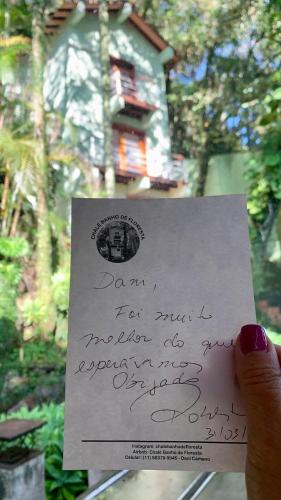 CHALÉ BANHO DE FLORESTA
Dani,
Foi muito
melhor do que
esperávamos
Obrigado
31/03/
Instagram: chalebanhodefloresta
Airbnb: Chalé Banho de Floresta
Celular: (11) 98379-9945 - Dani Camano